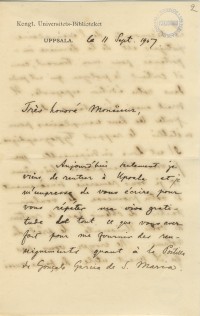 2
Kongl. Universitets-Bibliotekét
UPPSALA.
le 11 Sept. 1907
Très honoré Monsieur,
Aujourd'hui seulement je
viens de rentrer à Upsala et
m'empresse de vous écrire pour
vous répéter ma vive grati-
tude de tout ce que vous avez
fait pour me fournir des ren-
seignements quant à la
de Gonzalo Garcia de S. Maria